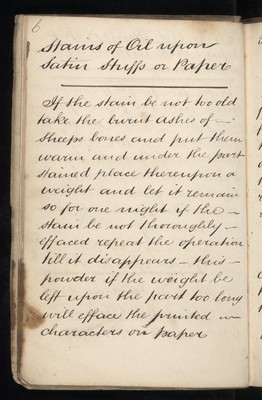 6
Stains of Oil upon
Satin Stuffs or Paper
If the stain be not too old
take the burnt ashes of —
Sheeps bones and put them
warm and under the part
stained place thereupon a
weight and let it remain
so for one night if the —
stain be not thoroughly —
effaced repeat the operation
till it disappears — this —
powder if the weight be
left upon the part too long
will efface the printed —
characters on paper